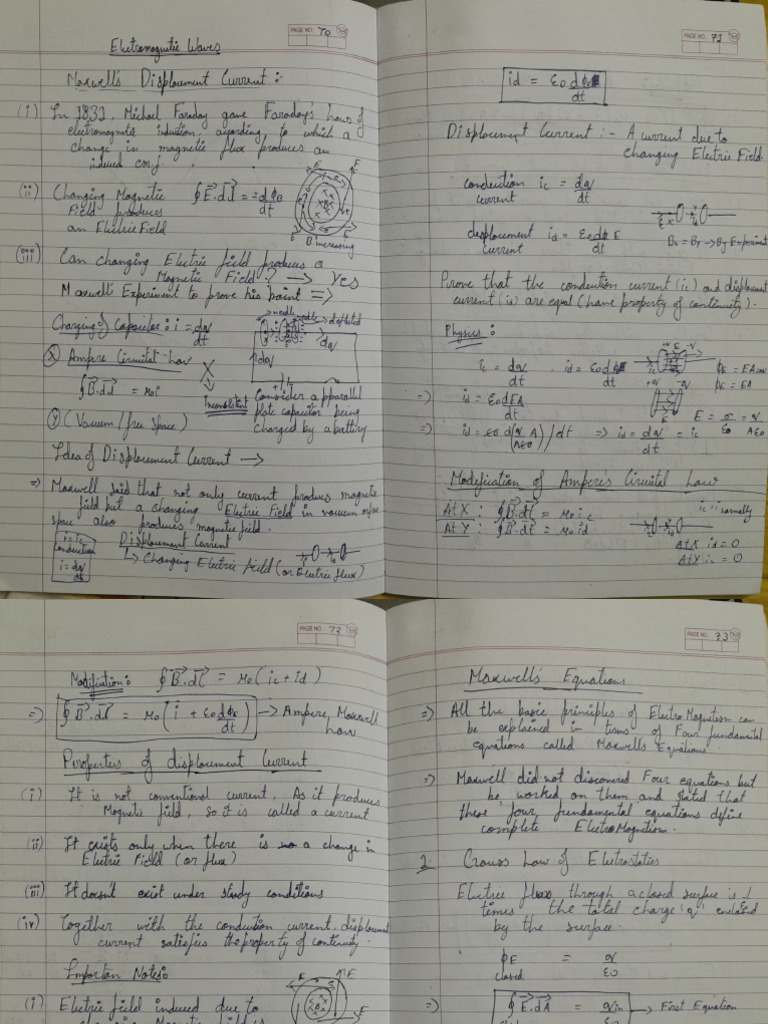 PAGE NO.: 70
Electromagnetic Waves
Maxwell's Displacment Current :-
(i) In 1832, Michael Faraday gave Faraday's laws of
electromagnetic induction, according to which a
change in magnetic flux produces an
induced emf.
(ii) Changing Magnetic ∮E⃗.dl⃗ = -dφB/dt
Field produces
an Electric Field
B increasing
(iii) Can changing Electric field produces a
Magnetic Field? → Yes
Maxwell's Experiment to prove his point ⇒
Charging of Capacitor: i = dq/dt
needle needle → deflected
dq
dq
(X) Ampere Circuital law
∮B⃗.dl⃗ = μ0i
Inconsistent
Consider a parallel
plate capacitor being
charged by a battery
(Y) (Vacuum/free space)
Idea of Displacment Current →
⇒ Maxwell said that not only current produces magnetic
field but a changing Electric Field in vacuum
space also produces magnetic field.
i = ic
conduction
i = dq/dt
Displacment Current
↳ Changing Electric field (or Electric flux)
PAGE NO.: 71
id = ε0 dφE/dt
Displacment Current :- A current due to
changing Electric Field.
conduction ic = dq/dt
current
desplacment id = ε0dφE/dt
current
Bx = By → By Experiment
Prove that the conduction current (ic) and displacment
current (id) are equal (have property of continuity).
Physics :
ic = dq/dt . id = ε0dφE/dt
φE = EA
⇒ id = ε0dEA/dt
E = σ/ε0 = q/Aε0
⇒ id = ε0 d(q/Aε0 A)/dt ⇒ id = dq/dt = ic
Modification of Ampere's Circuital Law
At X : ∮B⃗.dl⃗ = μ0ic
At Y : ∮B⃗.dl⃗ = μ0id
At X id = 0
At Y ic = 0
PAGE NO.: 72
Modification: ∮B⃗.dl⃗ = μ0(ic + id)
⇒ ∮B⃗.dl⃗ = μ0(i + ε0dφE/dt) → Ampere Maxwell
law
Properties of displacment Current
(i) It is not conventional current. As it produces
Magnetic field, so it is called a current
(ii) It exists only when there is a change in
Electric Field (or flux)
(iii) It doesn't exist under study conditions
(iv) Together with the conduction current, displacment
current satisfies the property of continuity.
Importan Notes:
(i) Electric field induced due to
PAGE NO.: 73
Maxwell's Equations
⇒ All the basic principles of ElectroMagnetism can
be explained in terms of Four fundamental
equations called Maxwell's Equations.
⇒ Maxwell did not discovered Four equations but
he worked on them and stated that
these four fundamental equations define
complete ElectroMagnetism.
1 Gauss Law of Electrostatics
Electric flux through a closed surface is 1/ε0
times the total charge 'q' enclosed
by the surface.
φE = q/ε0
closed
⇒ ∮E⃗.dA⃗ = qin/ε0 → First Equation